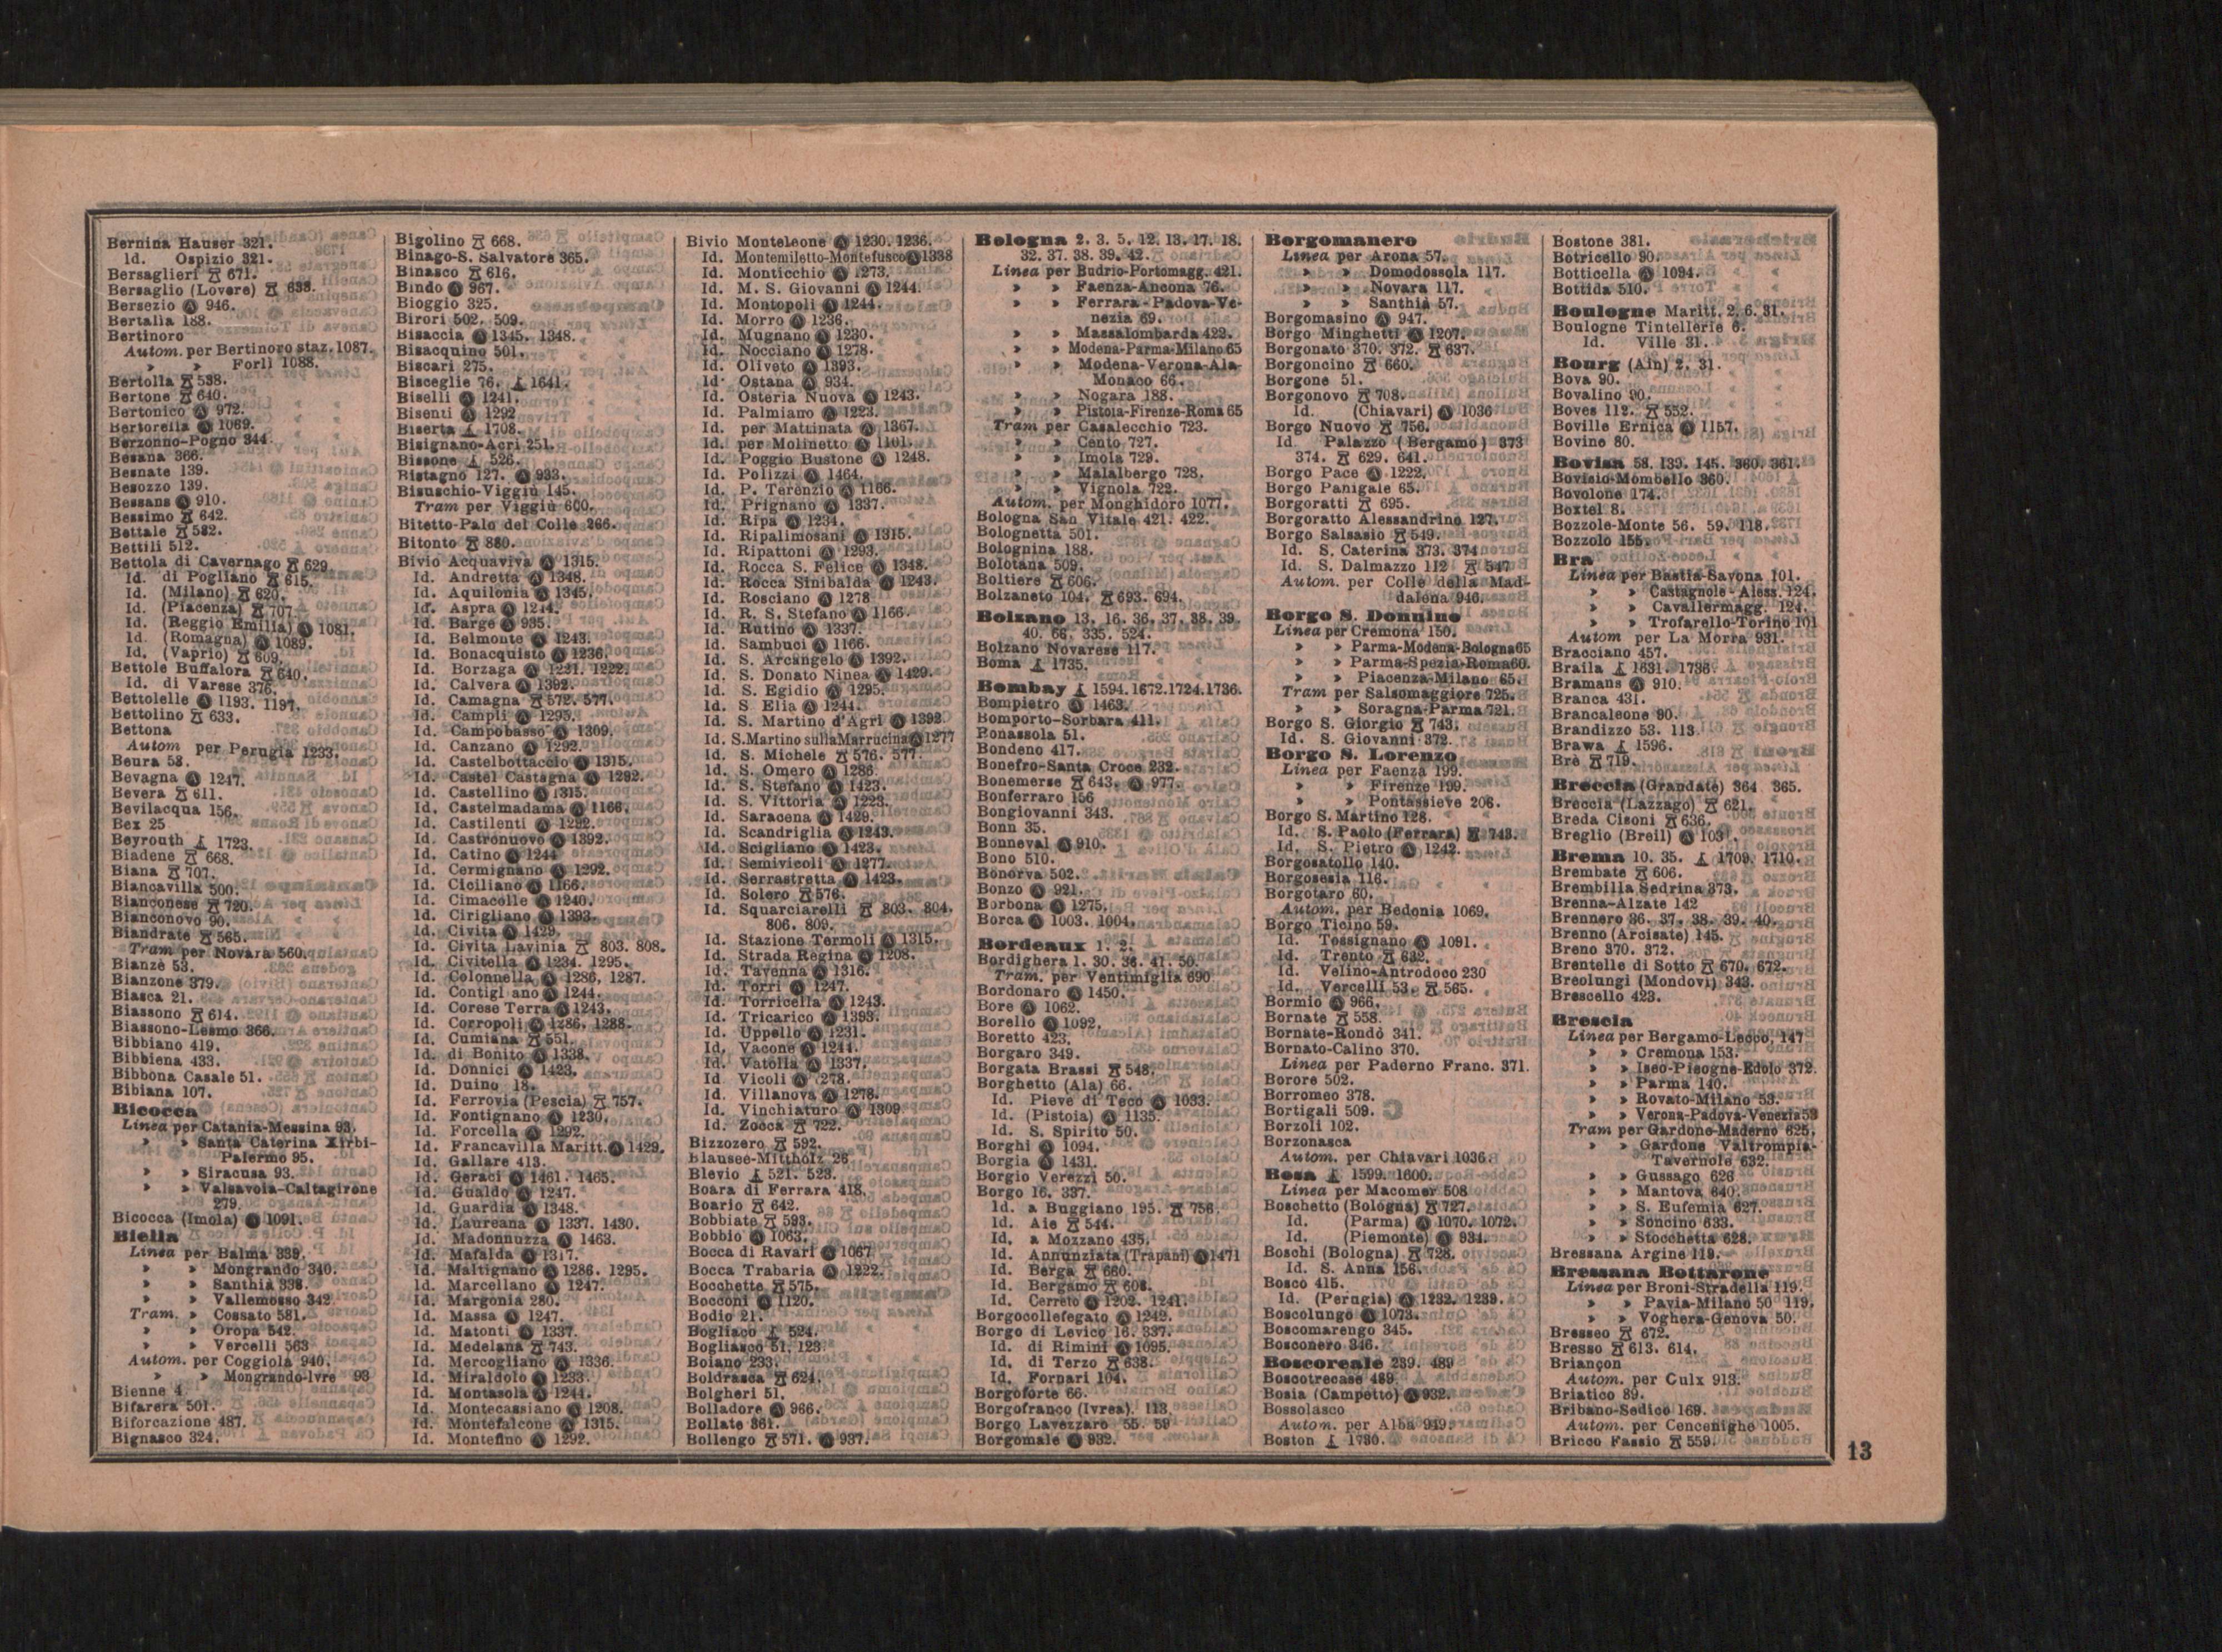 Bernina Hauser 321.
Id. Ospizio 321.
Bersaglieri 671.
Bersaglio (Lovere) 638.
Bersezio Ⓐ 946.
Bertalia 188.
Bertinoro
Autom. per Bertinoro staz. 1087.
» » Forlì 1088.
Bertolla 538.
Bertone 640.
Bertonico Ⓐ 972.
Bertorella Ⓐ 1069.
Berzonno-Pogno 344.
Besana 366.
Besnate 139.
Besozzo 139.
Bessans Ⓐ 910.
Bessimo 642.
Bettale 582.
Bettili 512.
Bettola di Cavernago 629
Id. di Pogliano 615.
Id. (Milano) 620.
Id. (Piacenza) 707
Id. (Reggio Emilia) Ⓐ 1081.
Id. (Romagna) Ⓐ 1089.
Id. (Vaprio) 609.
Bettole Buffalora 640.
Id. di Varese 376.
Bettolelle Ⓐ 1193. 1197.
Bettolino 633.
Bettona
Autom per Perugia 1233.
Beura 58.
Bevagna Ⓐ 1247.
Bevera 611.
Bevilacqua 156.
Bex 25
Beyrouth 1723.
Biadene 668.
Biana 707.
Biancavilla 500.
Bianconese 720.
Bianconovo 90.
Biandrate 565.
Tram per Novara 560.
Bianzè 53.
Bianzone 379.
Biasca 21.
Biassono 614.
Biassono-Lesmo 366.
Bibbiano 419.
Bibbiena 433.
Bibbona Casale 51.
Bibiana 107.
Bicocca
Linea per Catania-Messina 93.
» » Santa Caterina Xirbi-
Palermo 95.
» » Siracusa 93.
» » Valsavoia-Caltagirone
279.
Bicocca (Imola) Ⓐ 1091.
Biella
Linea per Balma 339.
» » Mongrando 340.
» » Santhià 338.
» » Vallemosso 342
Tram. » Cossato 581.
» » Oropa 542.
» » Vercelli 563
Autom. per Coggiola 940.
» » Mongrando-Ivre 93
Bienne 4
Bifarera 501.
Biforcazione 487.
Bignasco 324.
Bigolino 668.
Binago-S. Salvatore 365.
Binasco 616.
Bindo Ⓐ 967.
Bioggio 325.
Birori 502. 509.
Bisaccia Ⓐ 1345. 1348.
Bisacquino 501.
Biscari 275.
Bisceglie 76. 1641.
Biselli Ⓐ 1241.
Bisenti Ⓐ 1292
Biserta 1708.
Bisignano-Acri 251.
Bissone 526.
Bistagno 127. Ⓐ 933.
Bisuschio-Viggiù 145.
Tram per Viggiù 600.
Bitetto-Palo del Colle 266.
Bitonto 880.
Bivio Acquaviva Ⓐ 1315.
Id. Andretta Ⓐ 1348.
Id. Aquilonia Ⓐ 1345.
Id. Aspra Ⓐ 1244.
Id. Barge Ⓐ 935.
Id. Belmonte Ⓐ 1243.
Id. Bonacquisto Ⓐ 1236.
Id. Borzaga Ⓐ 1221. 1222.
Id. Calvera Ⓐ 1392.
Id. Camagna 572. 577.
Id. Campli Ⓐ 1295.
Id. Campobasso Ⓐ 1309.
Id. Canzano Ⓐ 1292.
Id. Castelbottaccio Ⓐ 1315.
Id. Castel Castagna Ⓐ 1292.
Id. Castellino Ⓐ 1315.
Id. Castelmadama Ⓐ 1166.
Id. Castilenti Ⓐ 1292.
Id. Castronuovo Ⓐ 1392.
Id. Catino Ⓐ 1244
Id. Cermignano Ⓐ 1292.
Id. Ciciliano Ⓐ 1166.
Id. Cimacolle Ⓐ 1240.
Id. Cirigliano Ⓐ 1393.
Id. Civita Ⓐ 1429.
Id. Civita Lavinia 803. 808.
Id. Civitella Ⓐ 1234. 1295.
Id. Colonnella Ⓐ 1286, 1287.
Id. Contigl ano Ⓐ 1244.
Id. Corese Terra Ⓐ 1243.
Id. Corropoli Ⓐ 1286. 1288.
Id. Cumiana 551.
Id. di Bonito Ⓐ 1338.
Id. Donnici Ⓐ 1423.
Id. Duino 18.
Id. Ferrovia (Pescia) 757.
Id. Fontignano Ⓐ 1230.
Id. Forcella Ⓐ 1292.
Id. Francavilla Maritt. Ⓐ 1429.
Id. Gallare 413.
Id. Geraci Ⓐ 1461. 1465.
Id. Gualdo Ⓐ 1247.
Id. Guardia Ⓐ 1348.
Id. Laureana Ⓐ 1337. 1430.
Id. Madonnuzza Ⓐ 1463.
Id. Mafalda Ⓐ 1317.
Id. Maltignano Ⓐ 1286. 1295.
Id. Marcellano Ⓐ 1247.
Id. Margonia 280.
Id. Massa Ⓐ 1247.
Id. Matonti Ⓐ 1337.
Id. Medelana 743.
Id. Mercogliano Ⓐ 1336.
Id. Miraldolo Ⓐ 1233.
Id. Montasola Ⓐ 1244.
Id. Montecassiano Ⓐ 1208.
Id. Montefalcone Ⓐ 1315.
Id. Montefino Ⓐ 1292.
Bivio Monteleone Ⓐ 1230. 1236.
Id. Montemiletto-Montefusco Ⓐ 1338
Id. Monticchio Ⓐ 1273.
Id. M. S. Giovanni Ⓐ 1244.
Id. Montopoli Ⓐ 1244.
Id. Morro Ⓐ 1236.
Id. Mugnano Ⓐ 1230.
Id. Nocciano Ⓐ 1278.
Id. Oliveto Ⓐ 1393.
Id. Ostana Ⓐ 934.
Id. Osteria Nuova Ⓐ 1243.
Id. Palmiano Ⓐ 1223.
Id. per Mattinata Ⓐ 1367.
Id. per Molinetto Ⓐ 1101.
Id. Poggio Bustone Ⓐ 1248.
Id. Polizzi Ⓐ 1464.
Id. P. Terenzio Ⓐ 1166.
Id. Prignano Ⓐ 1337.
Id. Ripa Ⓐ 1234.
Id. Ripalimosani Ⓐ 1315.
Id. Ripattoni Ⓐ 1293.
Id. Rocca S. Felice Ⓐ 1348.
Id. Rocca Sinibalda Ⓐ 1243.
Id. Rosciano Ⓐ 1278
Id. R. S. Stefano Ⓐ 1166.
Id. Rutino Ⓐ 1337.
Id. Sambuci Ⓐ 1166.
Id. S. Arcangelo Ⓐ 1392.
Id. S. Donato Ninea Ⓐ 1429.
Id. S. Egidio Ⓐ 1295.
Id. S Elia Ⓐ 1244.
Id. S. Martino d'Agri Ⓐ 1392.
Id. S. Martino sulla Marrucina Ⓐ 1277
Id. S. Michele 576. 577.
Id. S. Omero Ⓐ 1286.
Id. S. Stefano Ⓐ 1423.
Id. S. Vittoria Ⓐ 1223.
Id. Saracena Ⓐ 1429.
Id. Scandriglia Ⓐ 1243.
Id. Scigliano Ⓐ 1423.
Id. Semivicoli Ⓐ 1277.
Id. Serrastretta Ⓐ 1423.
Id. Solero 576.
Id. Squarciarelli 803. 804.
806. 809.
Id. Stazione Termoli Ⓐ 1315.
Id. Strada Regina Ⓐ 1208.
Id. Tavenna Ⓐ 1316.
Id. Torri Ⓐ 1247.
Id. Torricella Ⓐ 1243.
Id. Tricarico Ⓐ 1393.
Id. Uppello Ⓐ 1231.
Id. Vacone Ⓐ 1244.
Id. Vatolla Ⓐ 1337.
Id. Vicoli Ⓐ 278.
Id. Villanova Ⓐ 1278.
Id. Vinchiaturo Ⓐ 1309
Id. Zocca 722.
Bizzozero 592.
Blausee-Mittholz 26
Blevio 521. 523.
Boara di Ferrara 418.
Boario 642.
Bobbiate 593.
Bobbio Ⓐ 1063.
Bocca di Ravari Ⓐ 1067
Bocca Trabaria Ⓐ 1222.
Bocchette 575.
Bocconi Ⓐ 1120.
Bodio 21.
Bogliaco 524.
Bogliasco 51. 123
Boiano 233.
Boldrasca 624.
Bolgheri 51.
Bolladore Ⓐ 966.
Bollate 361.
Bollengo 571. Ⓐ 937.
Bologna 2. 3. 5. 12. 13. 17. 18.
32. 37. 38. 39. 42.
Linea per Budrio-Portomagg. 421.
» » Faenza-Ancona 76.
» » Ferrara-Padova-Ve-
nezia 69.
» » Massalombarda 422.
» » Modena-Parma-Milano 65
» » Modena-Verona-Ala-
Monaco 66.
» » Nogara 188.
» » Pistoia-Firenze-Roma 65
Tram per Casalecchio 723.
» » Cento 727.
» » Imola 729.
» » Malalbergo 728.
» » Vignola 722.
Autom. per Monghidoro 1077.
Bologna San Vitale 421. 422.
Bolognetta 501.
Bolognina 188.
Bolotana 509.
Boltiere 606.
Bolzaneto 104. 693. 694.
Bolzano 13. 16. 36. 37. 38. 39.
40. 66. 335. 524.
Bolzano Novarese 117.
Boma 1735.
Bombay 1594. 1672. 1724. 1736.
Bompietro Ⓐ 1463.
Bomporto-Sorbara 411.
Bonassola 51.
Bondeno 417.
Bonefro-Santa Croce 232.
Bonemerse 643. Ⓐ 977.
Bonferraro 156
Bongiovanni 343.
Bonn 35.
Bonneval Ⓐ 910.
Bono 510.
Bonorva 502.
Bonzo Ⓐ 921.
Borbona Ⓐ 1275.
Borca Ⓐ 1003. 1004.
Bordeaux 1. 2.
Bordighera 1. 30. 36. 41. 50.
Tram. per Ventimiglia 690
Bordonaro Ⓐ 1450.
Bore Ⓐ 1062.
Borello Ⓐ 1092.
Boretto 423.
Borgaro 349.
Borgata Brassi 548.
Borghetto (Ala) 66.
Id. Pieve di Teco Ⓐ 1033.
Id. (Pistoia) Ⓐ 1135.
Id. S. Spirito 50.
Borghi Ⓐ 1094.
Borgia Ⓐ 1431.
Borgio Verezzi 50.
Borgo 16. 337.
Id. a Buggiano 195. 756.
Id. Aie 544.
Id. a Mozzano 435.
Id. Annunziata (Trapani) Ⓐ 1471
Id. Berga 660.
Id. Bergamo 608.
Id. Cerreto Ⓐ 1202. 1241.
Borgocollefegato Ⓐ 1242.
Borgo di Levico 16. 337.
Id. di Rimini Ⓐ 1095.
Id. di Terzo 638.
Id. Fornari 104.
Borgoforte 66.
Borgofranco (Ivrea). 113.
Borgo Lavezzaro 55. 59
Borgomale Ⓐ 932.
Borgomanero
Linea per Arona 57.
» » Domodossola 117.
» » Novara 117.
» » Santhià 57.
Borgomasino Ⓐ 947.
Borgo Minghetti Ⓐ 1207.
Borgonato 370. 372. 637.
Borgoncino 660.
Borgone 51.
Borgonovo 708.
Id. (Chiavari) Ⓐ 1036
Borgo Nuovo 756.
Id. Palazzo (Bergamo) 373
374. 629. 641.
Borgo Pace Ⓐ 1222.
Borgo Panigale 65.
Borgoratti 695.
Borgoratto Alessandrino 127.
Borgo Salsasio 549.
Id. S. Caterina 373. 374
Id. S. Dalmazzo 112 547
Autom. per Colle della Mad-
dalena 946.
Borgo S. Donnino
Linea per Cremona 150.
» » Parma-Modena-Bologna 65
» » Parma-Spezia-Roma 60.
» » Piacenza-Milano 65.
Tram per Salsomaggiore 725.
» » Soragna-Parma 721.
Borgo S. Giorgio 743.
Id. S. Giovanni 372.
Borgo S. Lorenzo
Linea per Faenza 199.
» » Firenze 199.
» » Pontassieve 206.
Borgo S. Martino 128.
Id. S. Paolo (Ferrara) 743.
Id. S. Pietro Ⓐ 1242.
Borgosatollo 140.
Borgosesia 116.
Borgotaro 60.
Autom. per Bedonia 1069.
Borgo Ticino 59.
Id. Tossignano Ⓐ 1091.
Id. Trento 632.
Id. Velino-Antrodoco 230
Id. Vercelli 53. 565.
Bormio Ⓐ 966.
Bornate 558.
Bornate-Rondò 341.
Bornato-Calino 370.
Linea per Paderno Franc. 371.
Borore 502.
Borromeo 378.
Bortigali 509.
Borzoli 102.
Borzonasca
Autom. per Chiavari 1036.
Bosa 1599. 1600.
Linea per Macomer 508
Boschetto (Bologna) 727.
Id. (Parma) Ⓐ 1070. 1072.
Id. (Piemonte) Ⓐ 934.
Boschi (Bologna) 728.
Id. S. Anna 156.
Bosco 415.
Id. (Perugia) Ⓐ 1232. 1239.
Boscolungo Ⓐ 1073.
Boscomarengo 345.
Bosconero 346.
Boscoreale 239. 489
Boscotrecase 489.
Bosia (Campetto) Ⓐ 932.
Bossolasco
Autom. per Alba 949.
Boston 1730.
Bostone 381.
Botricello 90.
Botticella Ⓐ 1094.
Bottida 510.
Boulogne Maritt. 2. 6. 31.
Boulogne Tintellerie 6.
Id. Ville 31.
Bourg (Ain) 2. 31.
Bova 90.
Bovalino 90.
Boves 112. 552.
Boville Ernica Ⓐ 1157.
Bovino 80.
Bovisa 58. 139. 145. 360. 361.
Bovisio-Mombello 360.
Bovolone 174.
Boxtel 8.
Bozzole-Monte 56. 59. 118.
Bozzolo 155.
Bra
Linea per Bastia-Savona 101.
» » Castagnole-Aless. 124.
» » Cavallermagg. 124.
» » Trofarello-Torino 101
Autom per La Morra 931.
Bracciano 457.
Braila 1631. 1736.
Bramans Ⓐ 910.
Branca 431.
Brancaleone 90.
Brandizzo 53. 113.
Brawa 1596.
Brè 719.
Breccia (Grandate) 364. 365.
Breccia (Lazzago) 621.
Breda Cisoni 636.
Breglio (Breil) Ⓐ 103
Brema 10. 35. 1709. 1710.
Brembate 606.
Brembilla Sedrina 373.
Brenna-Alzate 142
Brennero 36. 37. 38. 39. 40.
Brenno (Arcisate) 145.
Breno 370. 372.
Brentelle di Sotto 670. 672.
Breolungi (Mondovì) 343.
Brescello 423.
Brescia
Linea per Bergamo-Lecco, 147
» » Cremona 153.
» » Iseo-Pisogne-Edolo 372.
» » Parma 140.
» » Rovato-Milano 53.
» » Verona-Padova-Venezia 53
Tram per Gardone-Maderno 625.
» » Gardone Valtrompia-
Tavernole 632.
» » Gussago 626
» » Mantova 640.
» » S. Eufemia 627.
» » Soncino 633.
» » Stocchetta 628.
Bressana Argine 119.
Bressana Bottarone
Linea per Broni-Stradella 119.
» » Pavia-Milano 50 119.
» » Voghera-Genova 50.
Bresseo 672.
Bresso 613. 614.
Briançon
Autom. per Oulx 913.
Briatico 89.
Bribano-Sedico 169.
Autom. per Cencenighe 1005.
Bricco Fassio 559.
13